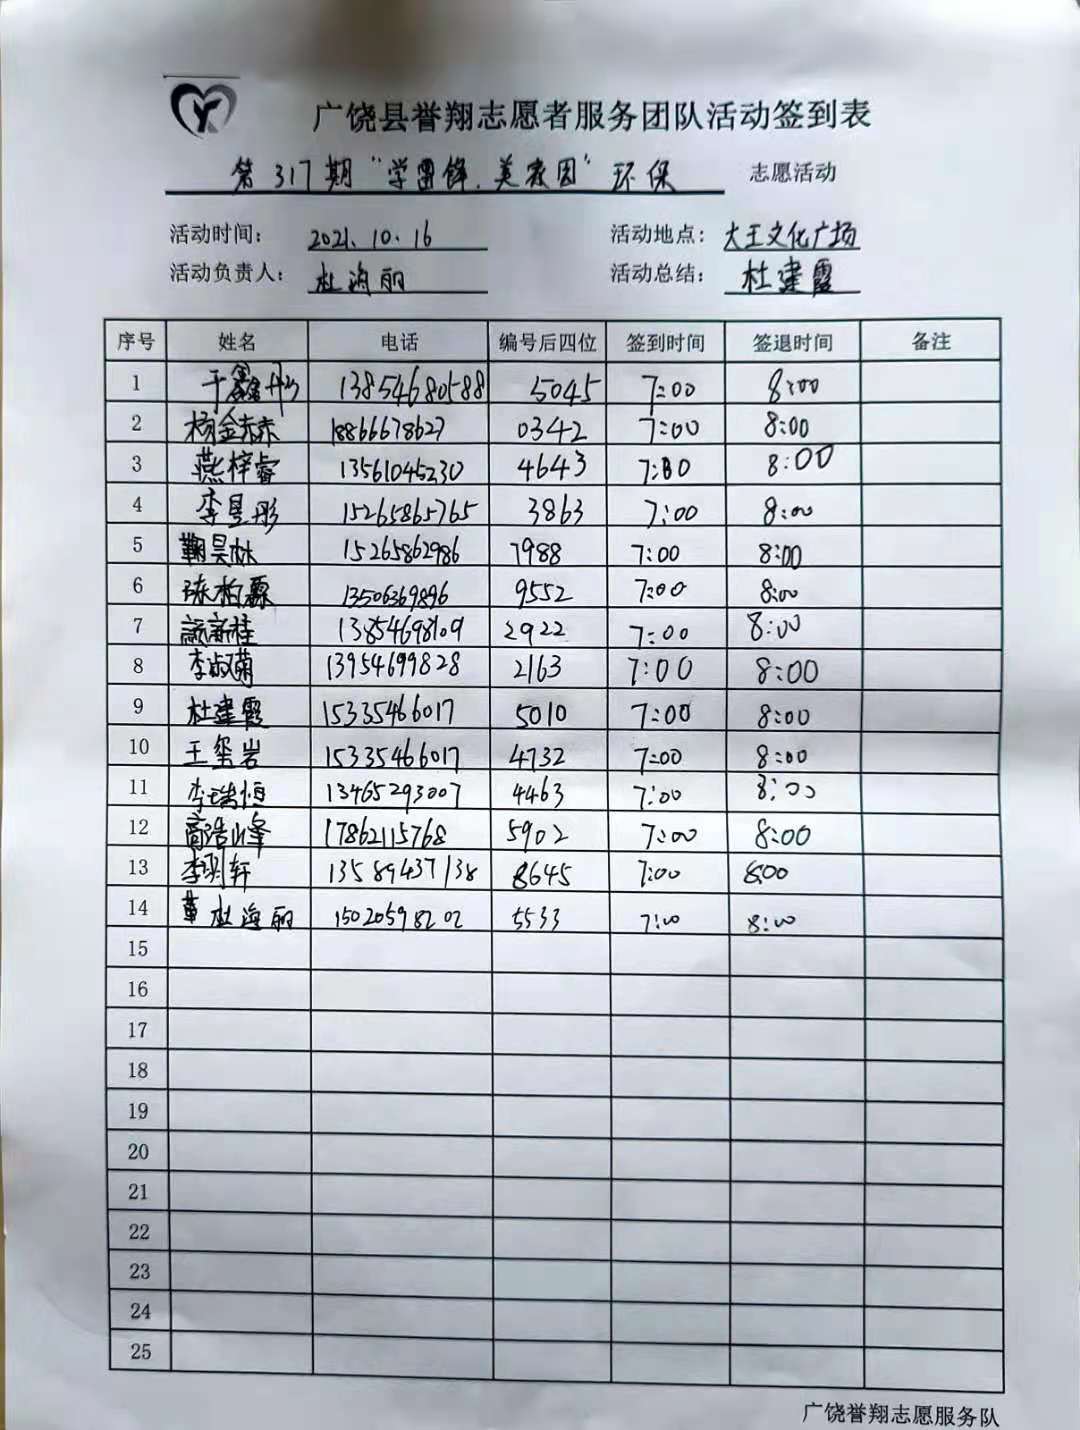 广饶县誉翔志愿者服务团队活动签到表
第317期“学雷锋.美家园”环保 志愿活动
活动时间： 2021.10.16 活动地点： 大王文化广场
活动负责人： 杜海丽 活动总结： 杜建霞
序号 姓名 电话 编号后四位 签到时间 签退时间 备注
1 于鑫彤 13854680588 5045 7:00 8:00
2 杨金赤 18866678627 0342 7:00 8:00
3 燕梓睿 13561045230 4643 7:00 8:00
4 李昱彤 15265865765 3863 7:00 8:00
5 鞠昊林 15265862986 7988 7:00 8:00
6 张柏霖 13506369896 9552 7:00 8:00
7 新桂 13854698109 2922 7:00 8:00
8 李淑菊 13954699828 2163 7:00 8:00
9 杜建霞 15335466017 5010 7:00 8:00
10 王玺岩 15335466017 4732 7:00 8:00
11 李瑞恒 13465293007 4463 7:00 8:00
12 高浩峰 17862115768 5902 7:00 8:00
13 李玥轩 13589437138 8645 7:00 8:00
14 杜海丽 15020598202 5533 7:00 8:00
15
16
17
18
19
20
21
22
23
24
25
广饶誉翔志愿服务队